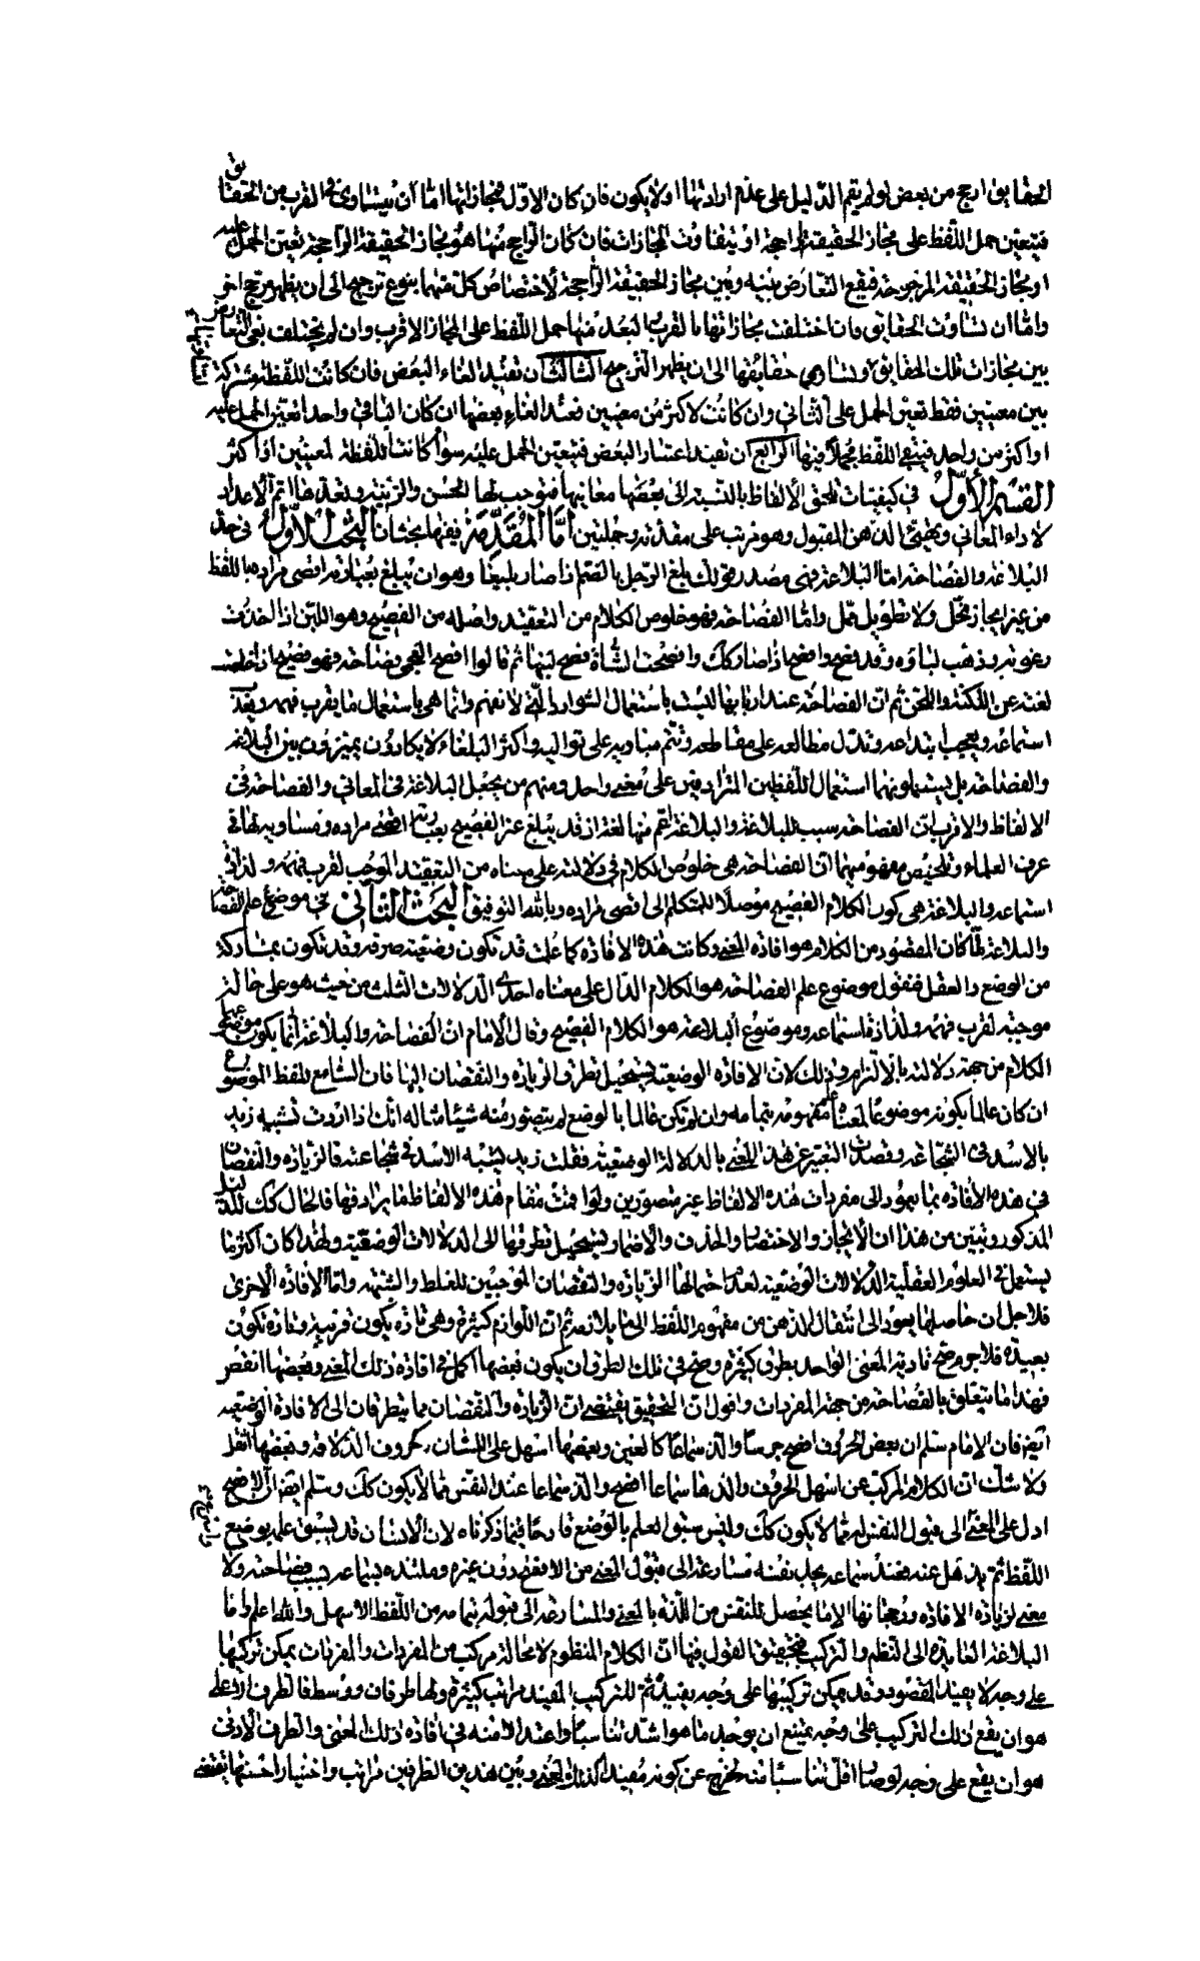 الحقايق ارجح من بعض لو لم يقم الدّليل على عدم ارادتها او لا يكون فان كان الاوّل فمجازاتها امّا ان يتساوى فى القرب من الحقايق
فيتعيّن حمل اللّفظ على مجاز الحقيقة الراجحة او يتفاوت المجازات فان كان الراجح منها هو مجاز الحقيقة الراجحة تعيّن الحمل عليه
او مجاز الحقيقة المرجوحة فيقع التعارض بينه وبين مجاز الحقيقة الراجحة لاختصاص كل منهما بنوع ترجيح الى ان يظهر مرجح اخر
وامّا ان تساوت الحقايق فان اختلفت مجازاتها بالقرب والبعد منها حمل اللفظ على المجاز الاقرب وان لم يختلف بقى التعارض
بين مجازات تلك الحقايق وتساوى حقايقها الى ان يظهر الترجيح الثالث ان تفيد الغاء البعض فان كانت اللفظة مشتركة
بين معنيين فقط تعيّن الحمل على الثانى وان كانت لاكثر من معنيين فعند الغاء بعضها ان كان الباقى واحدا تعيّن الحمل عليه
او اكثر من واحد فيبقى اللفظ مجملا فيها الرابع ان تفيد اعتبار البعض فتعيّن الحمل عليه سواء كانت اللفظة لمعنيين او اكثر
القسم الاوّل فى كيفيات تلحق الالفاظ بالنسبة الى بعضها معانيها فتوجب لها الحسن والزينة وتعدها اتم الاعداد
لاداء المعانى وتهيئ الذهن للقبول وهو مرتب على مقدمة وجملتين امّا المقدّمة ففيها بحثان البحث الاوّل فى حدّ
البلاغة والفصاحة امّا البلاغة فهى مصدر قولك بلغ الرجل بالضم اذا صار بليغا وهو ان يبلغ بعبارته اقصى مراده باللفظ
من غير ايجاز مخلّ ولا تطويل مملّ وامّا الفصاحة فهو خلوص الكلام من التعقيد واصله من الفصيح وهو اللبن اذا اخذت
رغوته وذهب لباؤه وقد فصح وافصح اذا صار كك وافصحت الشاة فصح لبنها ثم قالوا افصح العجمى فصاحة فهو فصيح اذا خلصت
لغته عن اللكنة واللحن ثم ان الفصاحة عند اربابها ليست باستعمال الشوارد الّتى لا تفهم وانما هى باستعمال ما يقرب فهمه ويعذب
استماعه ويعجب ابتداعه وتدل مطالعه على مقاطعه وتتم مباديه على تواليه واكثر البلغاء لا يكادون يميزون بين البلاغة
والفصاحة بل يستعملونهما استعمال اللفظين المترادفين على معنى واحد ومنهم من يجعل البلاغة فى المعانى والفصاحة فى
الالفاظ والاقرب ان الفصاحة سبب للبلاغة والبلاغة اتم منها لغة اذ قد يبلغ غير الفصيح بعبارته اقصى مراده ومساويه لها فى
عرف العلماء وتلخيص مفهوميهما ان الفصاحة هى خلوص الكلام فى دلالته على معناه من التعقيد الموجب لقرب فهمه ولذاذة
استماعه والبلاغة هى كون الكلام الفصيح موصلا للمتكلم الى اقصى مراده وبالله التوفيق البحث الثانى فى موضوع علم الفصاحة
والبلاغة لمّا كان المقصود من الكلام هو افادة المعنى وكانت هذه الافادة كما علمت قد تكون وضعية صرفة وقد تكون بمشاركة
من الوضع والعقل فنقول موضوع علم الفصاحة هو الكلام الدّال على معناه احدى الدلالات الثلث من حيث هو على حالة
موجبة لقرب فهمه ولذاذة استماعه وموضوع البلاغة هو الكلام الفصيح وقال الامام ان الفصاحة والبلاغة انما يكون موضعهما
الكلام من جهة دلالته بالالتزام وذلك لان الافادة الوضعية يستحيل تطرق الزيادة والنقصان اليها فان السامع للفظ الموضوع
ان كان عالما بكونه موضوعا لمعناه علم مفهومه بتمامه وان لم يكن عالما بالوضع لم يتصور منه شيئا مثاله انك اذا اردت تشبيه زيد
بالاسد فى الشجاعة وقصدت التعبير عن هذا المعنى بالدلالة الوضعية فقلت زيد يشبه الاسد فى شجاعته فالزيادة والنقصان
فى هذه الافادة بما يعود الى مفردات هذه الالفاظ غير متصورين ولو اقمت مقام هذه الالفاظ ما يرادفها فالحال كك للدليل
المذكور وتبين من هذا ان الايجاز والاختصار والحذف والاضمار يستحيل تطرقها الى الدلالات الوضعية ولهذا كان اكثر ما
يستعمل فى العلوم العقلية الدلالات الوضعية لعدم احتمالها الزيادة والنقصان الموجبين للغلط والشبهة وامّا الافادة الاخرى
فلاجل ان حاصلها يعود الى انتقال الذهن من مفهوم اللفظ الى ما يلازمه ثم ان اللوازم كثيرة وهى تارة يكون قريبة وتارة تكون
بعيدة فلا جرم صح تأدية المعنى الواحد بطرق كثيرة وصح فى تلك الطرق ان يكون بعضها اكمل فى افادة ذلك المعنى وبعضها انقص
فهذا ما يتعلق بالفصاحة من جهة المفردات واقول ان التحقيق يقتضى ان الزيادة والنقصان مما يتطرقان الى الافادة الوضعية
ايضا فان الامام سلم ان بعض الحروف افصح جرسا والذ سماعا كالعين وبعضها اسهل على اللسان كحروف الذلاقة وبعضها اثقل
ولا شك ان الكلام المركب عن اسهل الحروف والذها سماعا افصح والذ سماعا عند النفس ممّا لا يكون كك وسلم ايضا ان الافصح
ادل على المعنى الى قبول النفس له ممّا لا يكون كك وليس سبق العلم بالوضع قادحا فيما ذكرناه لان الانسان قد يسبق علمه بوضع
اللفظ ثم يذهل عنه فعند سماعه يجد نفسه مسارعة الى قبول المعنى من الافصح دون غيره وملتذه بسماعه بسبب فصاحته ولا
معنى لزيادة الافادة ورجحانها الا ما يحصل للنفس من اللذة بالمعنى والمسارعة الى قبوله بتمامه من اللفظ الاسهل والله اعلم وامّا
البلاغة العايدة الى النظم والتركيب فتحقيق القول فيها ان الكلام المنظوم لا محالة مركب من المفردات والمفردات يمكن تركيبها
على وجه لا يفيد المقصود وقد يمكن تركيبها على وجه يفيده ثم للتركيب المفيد مراتب كثيرة ولها طرفان ووسط فالطرف الاعلى
هو ان يقع ذلك التركيب على وجه يمتنع ان يوجد ما هو اشد تناسبا واعتدالا منه فى افادة ذلك المعنى والطرف الادنى
هو ان يقع على وجه لو صار اقل تناسبا منه لخرج عن كونه مفيدا لذلك المعنى وبين هذين الطرفين مراتب واختيار احسنها يقتضى